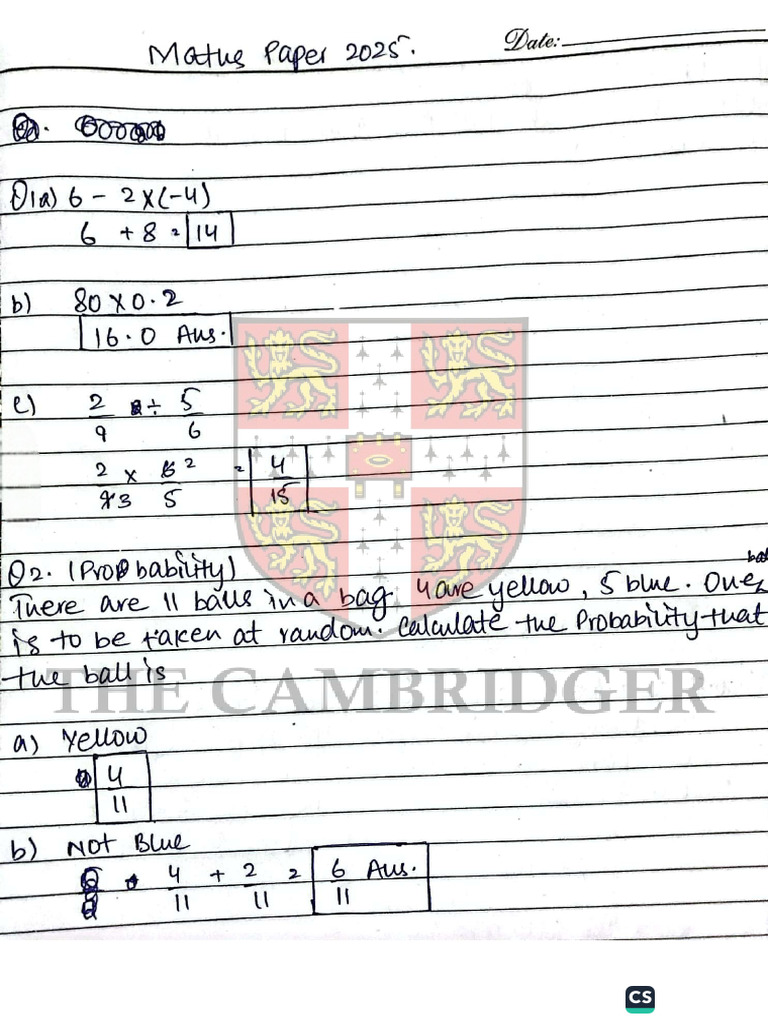 Maths Paper 2025.
Date:
Q1a) 6 - 2 x (-4)
6 + 8 = 14
b) 80 x 0.2
16.0 Ans.
c) 2/9 ÷ 5/6
2/9 3 x 6 2/5 = 4/15
Q2. (Probability)
There are 11 balls in a bag 4 are yellow, 5 blue. One ball
is to be taken at random. Calculate the Probability that
the ball is
THE CAMBRIDGER
a) Yellow
4/11
b) Not Blue
4/11 + 2/11 = 6/11 Ans.
CS